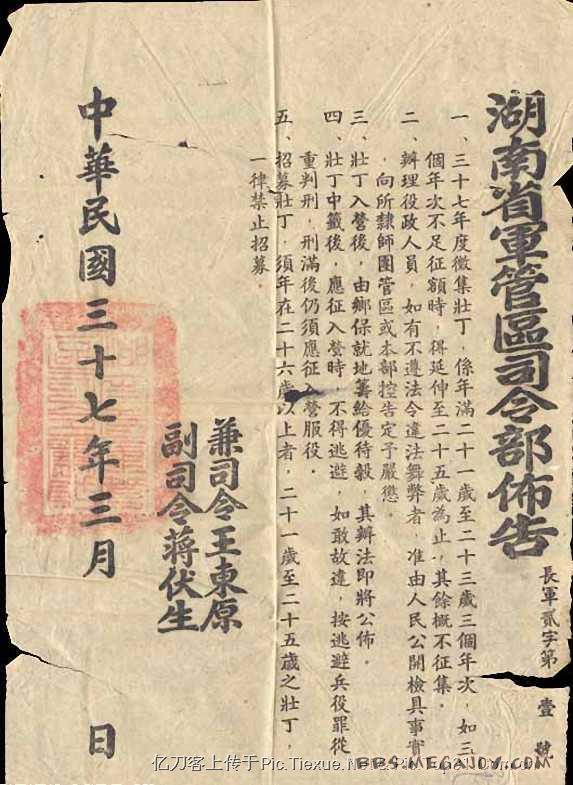 湖南省軍管區司令部佈告
長軍貳字第壹號
一、三十七年度徵集壯丁，係年滿二十一歲至二十三歲三個年次，如三
個年次不足征額時，得延伸至二十五歲為止，其餘概不征集．
二、辦理役政人員，如有不遵法令違法舞弊者，准由人民公開檢具事實
，向所隸師團管區或本部控告定予嚴懲．
三、壯丁入營後，由鄉保就地籌給優待穀，其辦法即將公佈．
四、壯丁中籤後，應征入營時，不得逃避，如敢故違，按逃避兵役罪從
重判刑，刑滿後仍須應征入營服役．
五、招募壯丁，須年在二十六歲以上者，二十一歲至二十五歲之壯丁，
一律禁止招募．
兼司令王東原
副司令蔣伏生
中華民國三十七年三月 日
亿刀客上传于Pic.Tiexue.Net
BBS.MEGAJOY.COM